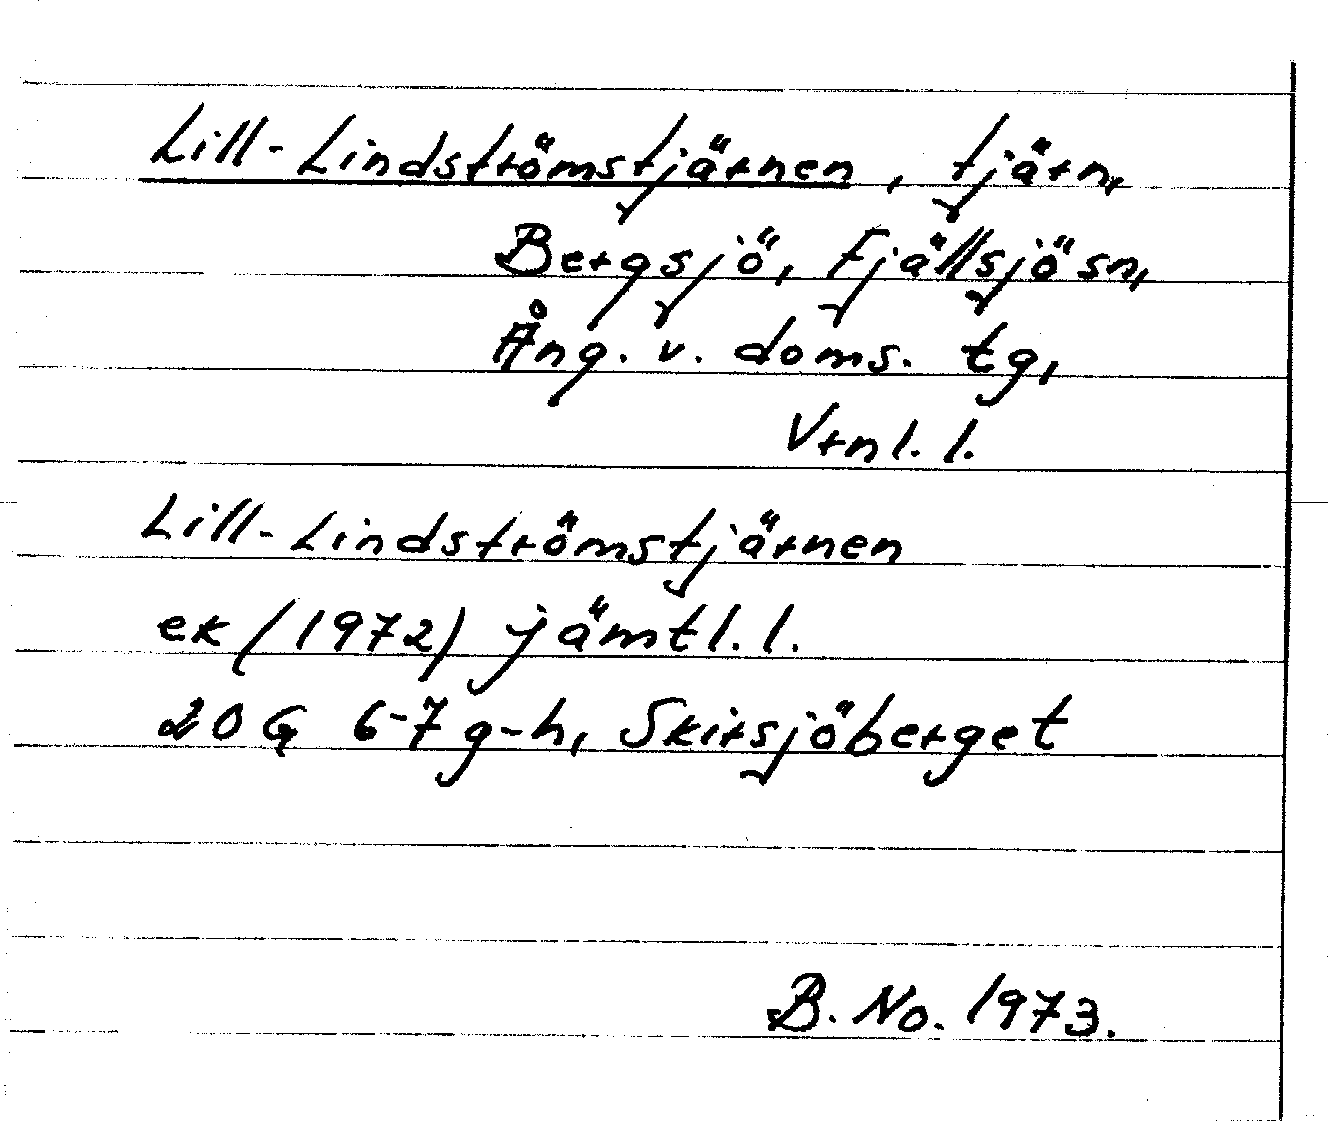 Lill-Lindströmstjärnen, tjärn,
Bergsjö, Fjällsjösn,
Ång. v. doms. tg,
Vrnl. l.
Lill-Lindströmstjärnen
ek (1972) jämtl. l.
20 G 6-7 g-h, Skirsjöberget
B. No. 1973.